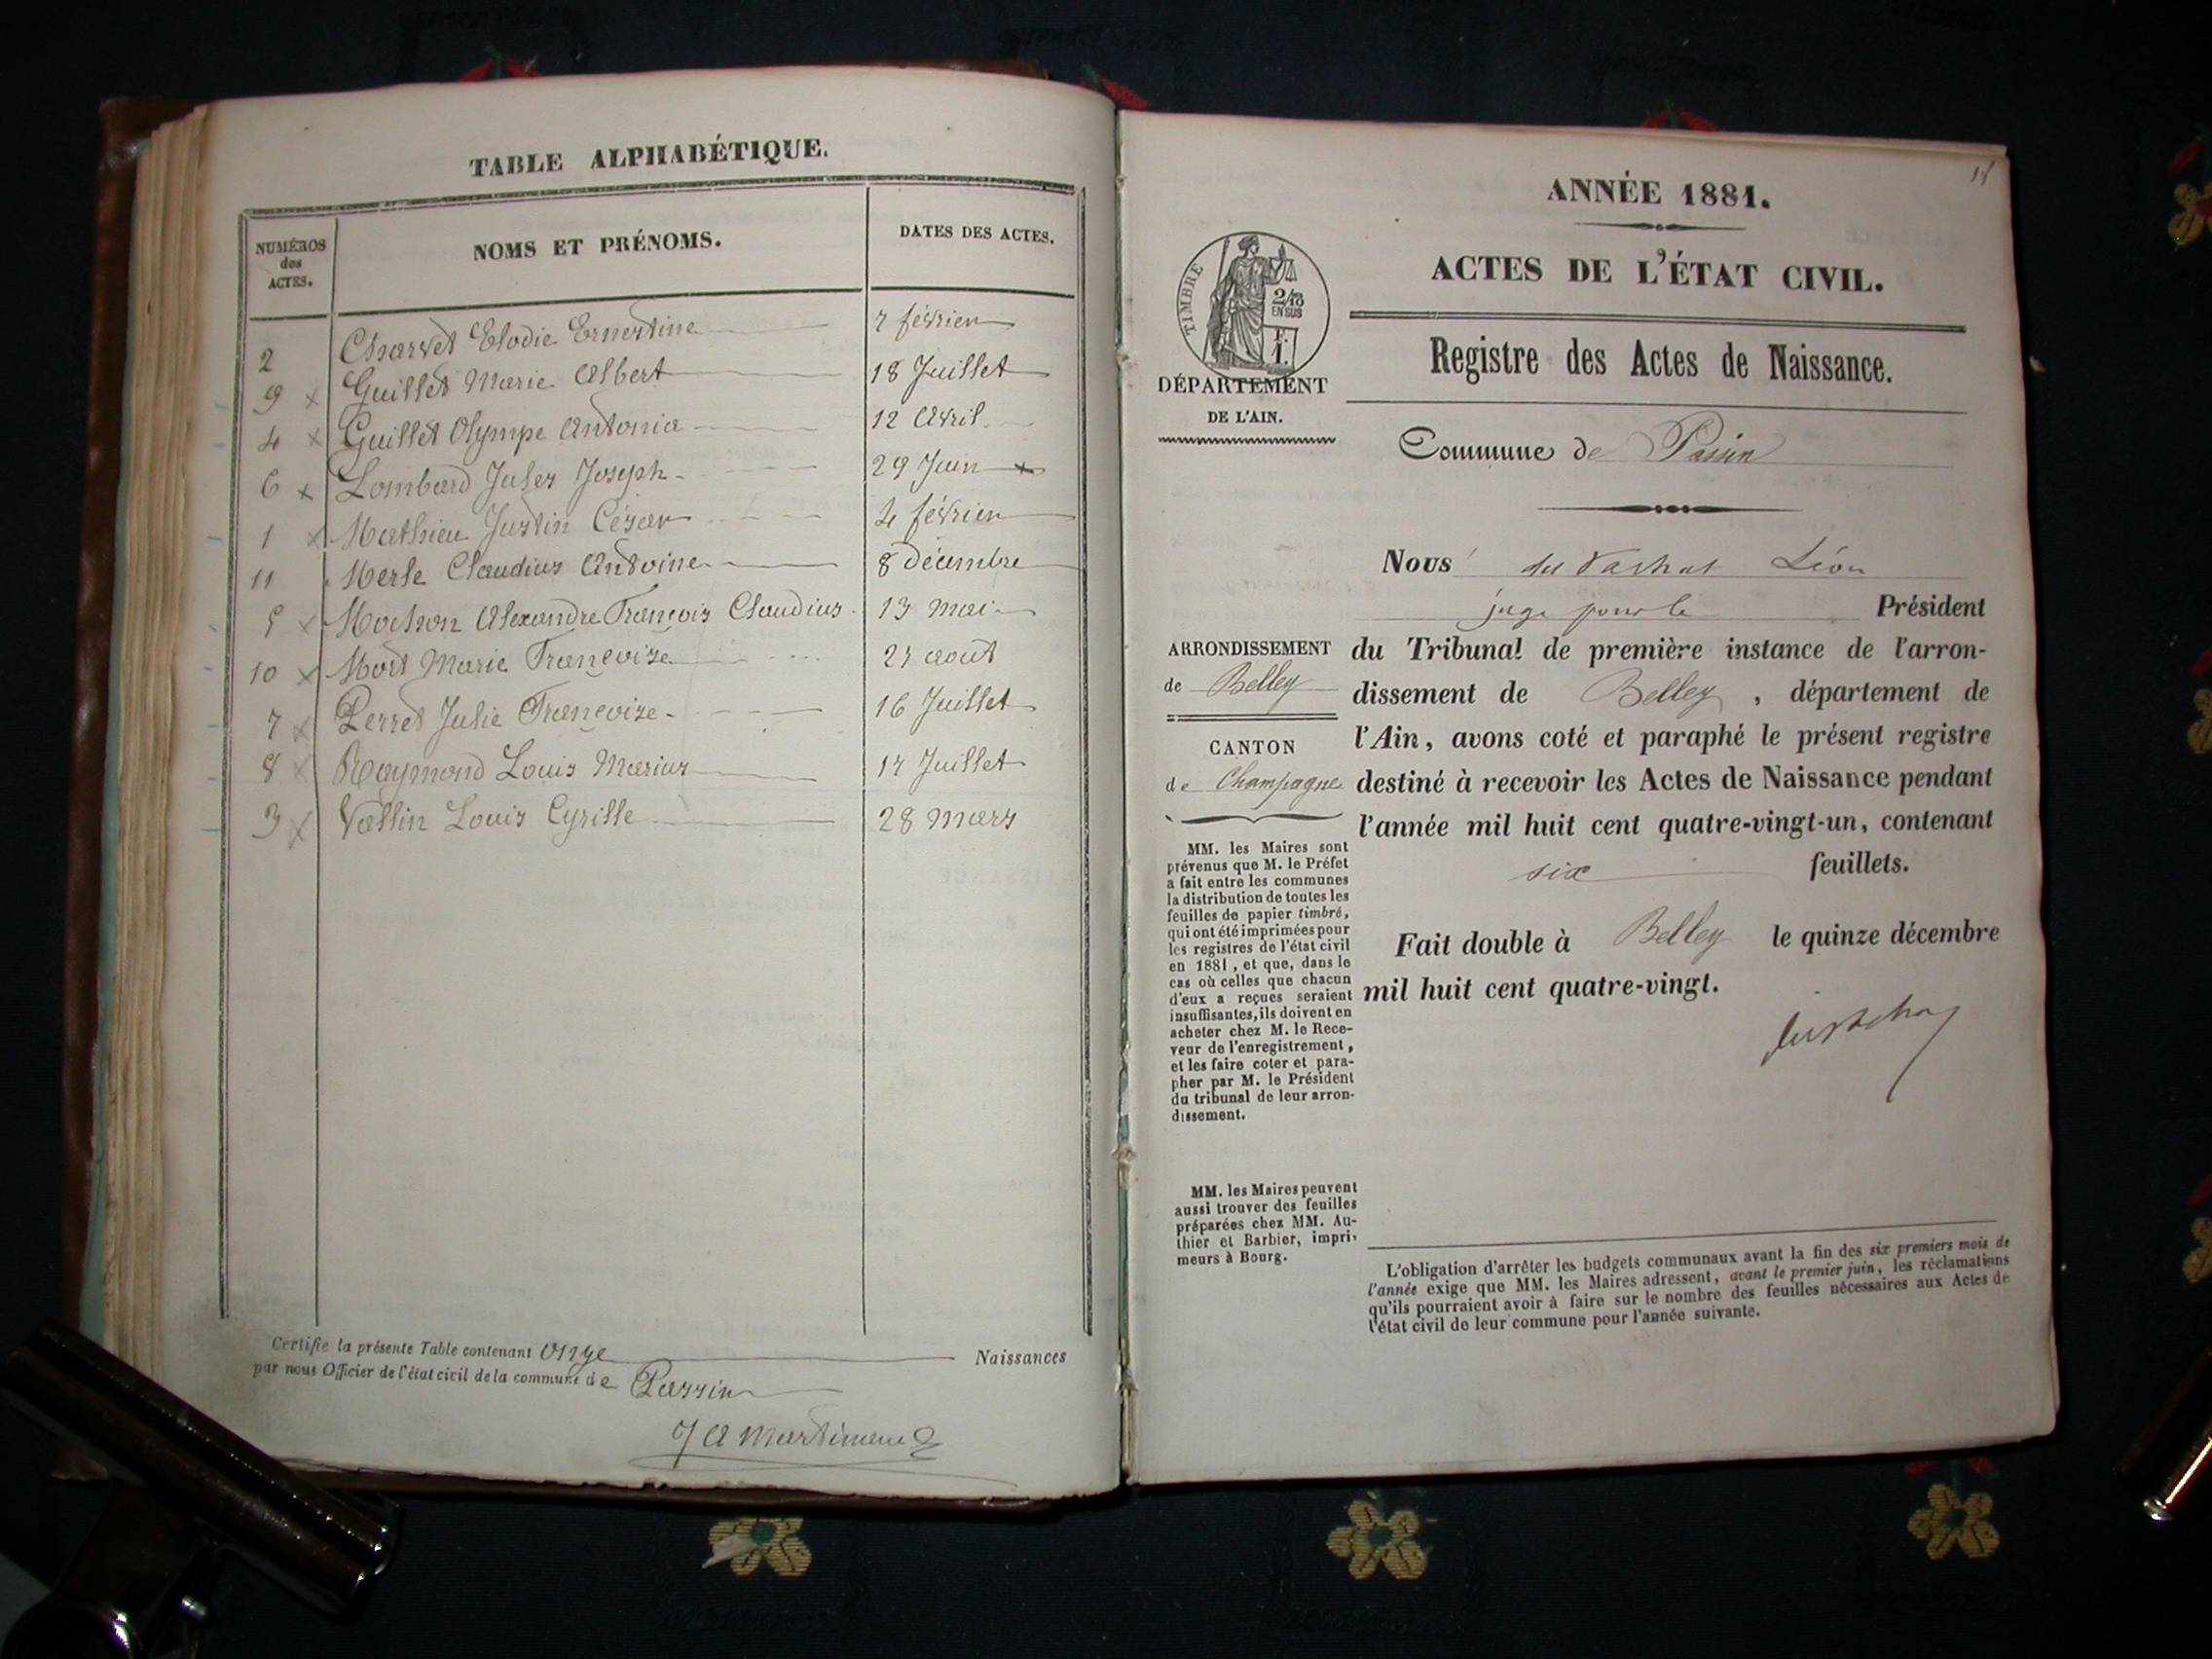 TABLE ALPHABÉTIQUE.
NUMÉROS des ACTES. NOMS ET PRÉNOMS. DATES DES ACTES.
2 Charvet Elodie Ernestine 7 février
9 x Guillet Marie Albert 18 Juillet
4 x Guillet Olympe Antonia 12 Avril
6 x Lombard Jules Joseph 29 Juin x
1 x Mathieu Justin Cézar 4 février
11 Merle Claudius Antoine 8 Décembre
5 x Mochon Alexandre François Claudius 13 mai
10 x Mort Marie Françoise août
7 x Perret Julie Françoise 16 Juillet
8 x Raymond Louis Marius 17 Juillet
3 x Vallin Louis Cyrille 28 Mars
Certifie la présente Table contenant onze Naissances
par nous Officier de l'état civil de la commune de Passin
18
ANNÉE 1881.
ACTES DE L'ÉTAT CIVIL.
TIMBRE
2/10
EN SUS
F.
1.
Registre des Actes de Naissance.
DÉPARTEMENT
DE L'AIN.
Commune de Passin
Nous du Vachat Léon
juge pour le Président
du Tribunal de première instance de l'arron-
dissement de Belley, département de
l'Ain, avons coté et paraphé le présent registre
destiné à recevoir les Actes de Naissance pendant
l'année mil huit cent quatre-vingt-un, contenant
six feuillets.
Fait double à Belley le quinze décembre
mil huit cent quatre-vingt.
ARRONDISSEMENT
de Belley
CANTON
de Champagne
MM. les Maires sont
prévenus que M. le Préfet
a fait entre les communes
la distribution de toutes les
feuilles de papier timbré,
qui ont été imprimées pour
les registres de l'état civil
en 1881, et que, dans le
cas où celles que chacun
d'eux a reçues seraient
insuffisantes, ils doivent en
acheter chez M. le Rece-
veur de l'enregistrement,
et les faire coter et para-
pher par M. le Président
du tribunal de leur arron-
dissement.
MM. les Maires peuvent
aussi trouver des feuilles
préparées chez MM. Au-
thier et Barbier, impri-
meurs à Bourg.
L'obligation d'arrêter les budgets communaux avant la fin des six premiers mois de
l'année exige que MM. les Maires adressent, avant le premier juin, les réclamations
qu'ils pourraient avoir à faire sur le nombre des feuilles nécessaires aux Actes de
l'état civil de leur commune pour l'année suivante.